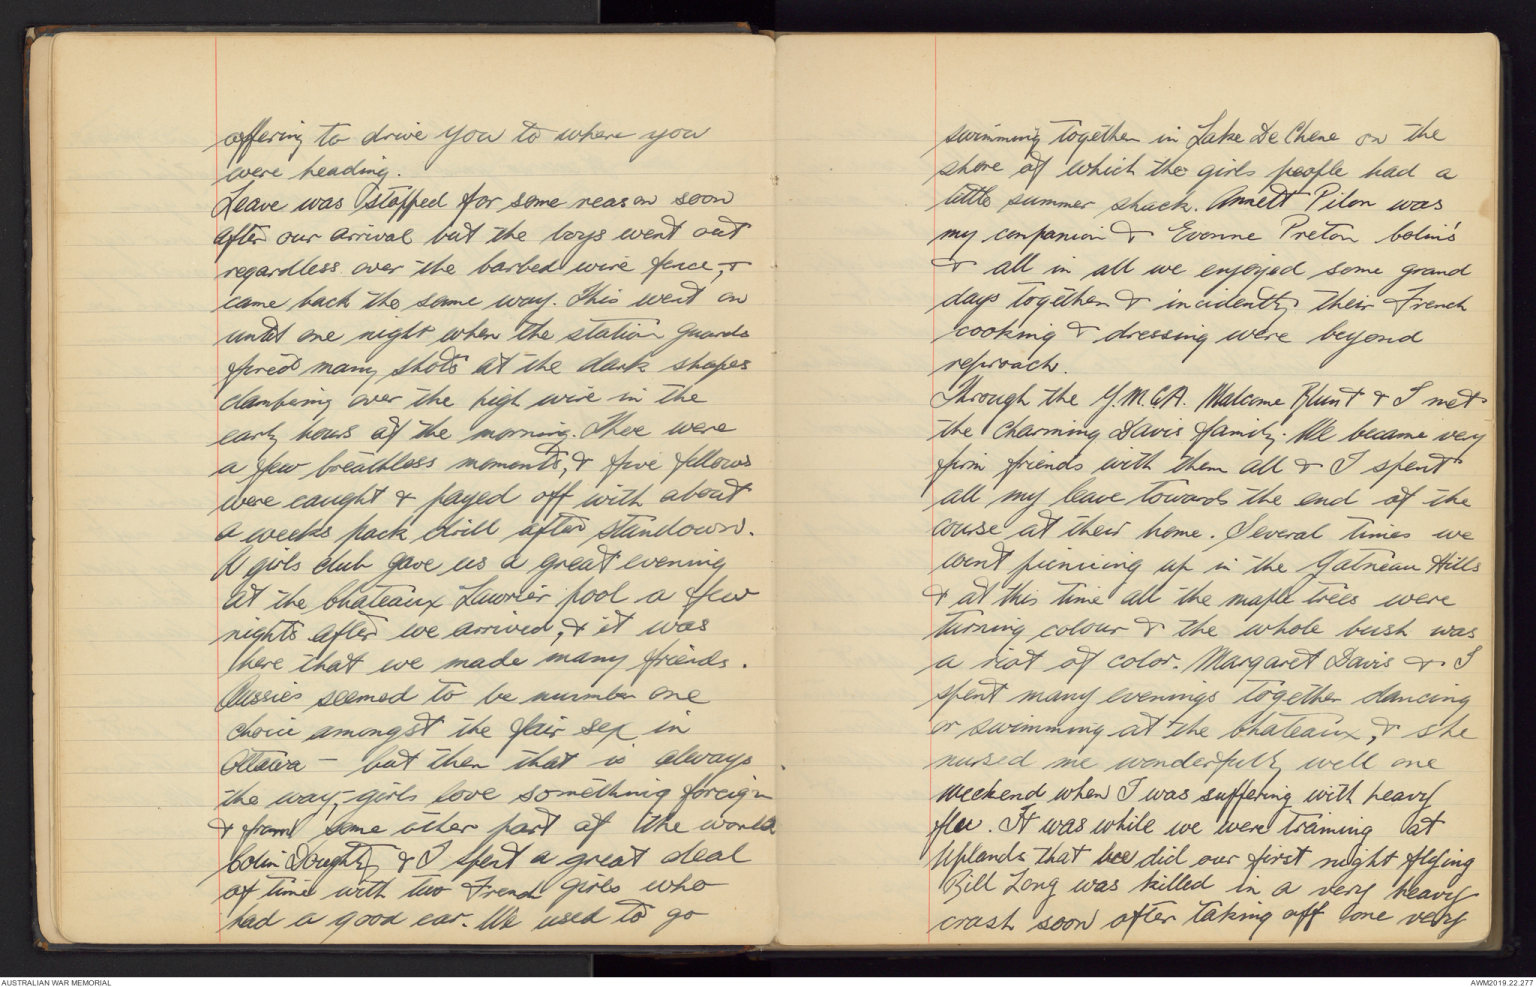 offering to drive you to where you
were heading.
Leave was stopped for some reason soon
after our arrival but the boys went out
regardless over the barbed wire fence, &
came back the same way. This went on
until one night when the station guards
fired many shots at the dark shapes
clambering over the high wire in the
early hours of the morning. There were
a few breathless moments, & five fellows
were caught & payed off with about
a weeks pack drill after standown.
A girls club gave us a great evening
at the Chateaux Laurier pool a few
nights after we arrived, & it was
here that we made many friends.
Aussies seemed to be number one
choice amongst the fair sex in
Ottawa - but then that is always
the way, - girls love something foreign
& from some other part of the world
Colin Doughty & I spent a great deal
of time with two French girls who
had a good car. We used to go
swimming together in Lake De Chene on the
shore of which the girls people had a
little summer shack. Annett Pilon was
my companion & Evonne Preton Colin's
& all in all we enjoyed some grand
days together & incidently their French
cooking & dressing were beyond
reproach.
Through the Y.M.C.A. Malcome Blunt & I met
the charming Davis family. We became very
firm friends with them all & I spent
all my leave towards the end of the
course at their home. Several times we
went picnicing up in the Gatneau Hills
& at this time all the maple trees were
turning colour & the whole bush was
a riot of color. Margaret Davis & I
spent many evenings together dancing
or swimming at the Chateaux, & she
nursed me wonderfully well one
weekend when I was suffering with heavy
flu. It was while we were training at
Uplands that we did our first night flying
Bill Long was killed in a very heavy
crash soon after taking off one very
AUSTRALIAN WAR MEMORIAL
AWM2019.22.277